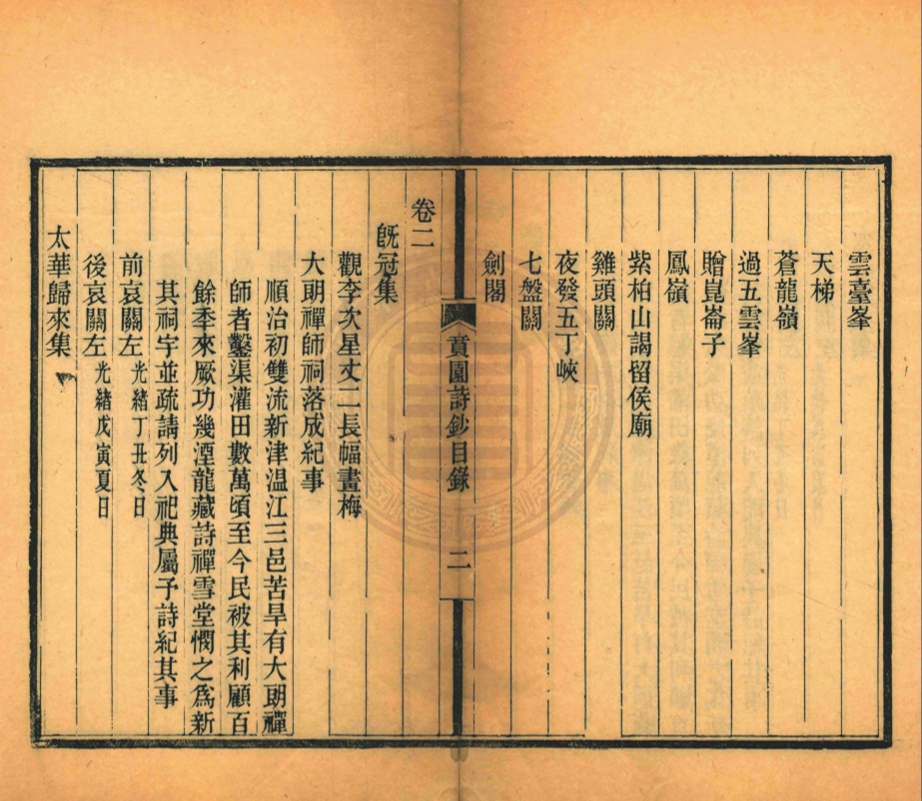 雲臺峯
天梯
蒼龍嶺
過五雲峯
贈崑崙子
鳳嶺
紫柏山謁留侯廟
雞頭關
夜發五丁峽
七盤關
劍閣
賁園詩鈔目錄 二
卷二
旣冠集
觀李次星丈二長幅畫梅
大朗禪師祠落成紀事
順治初雙流新津温江三邑苦旱有大朗禪
師者鑿渠灌田數萬頃至今民被其利顧百
餘季來厥功幾湮龍藏詩禪雪堂憫之爲新
其祠宇並疏請列入祀典屬予詩紀其事
前哀關左光緒丁丑冬日
後哀關左光緒戊寅夏日
太華歸來集